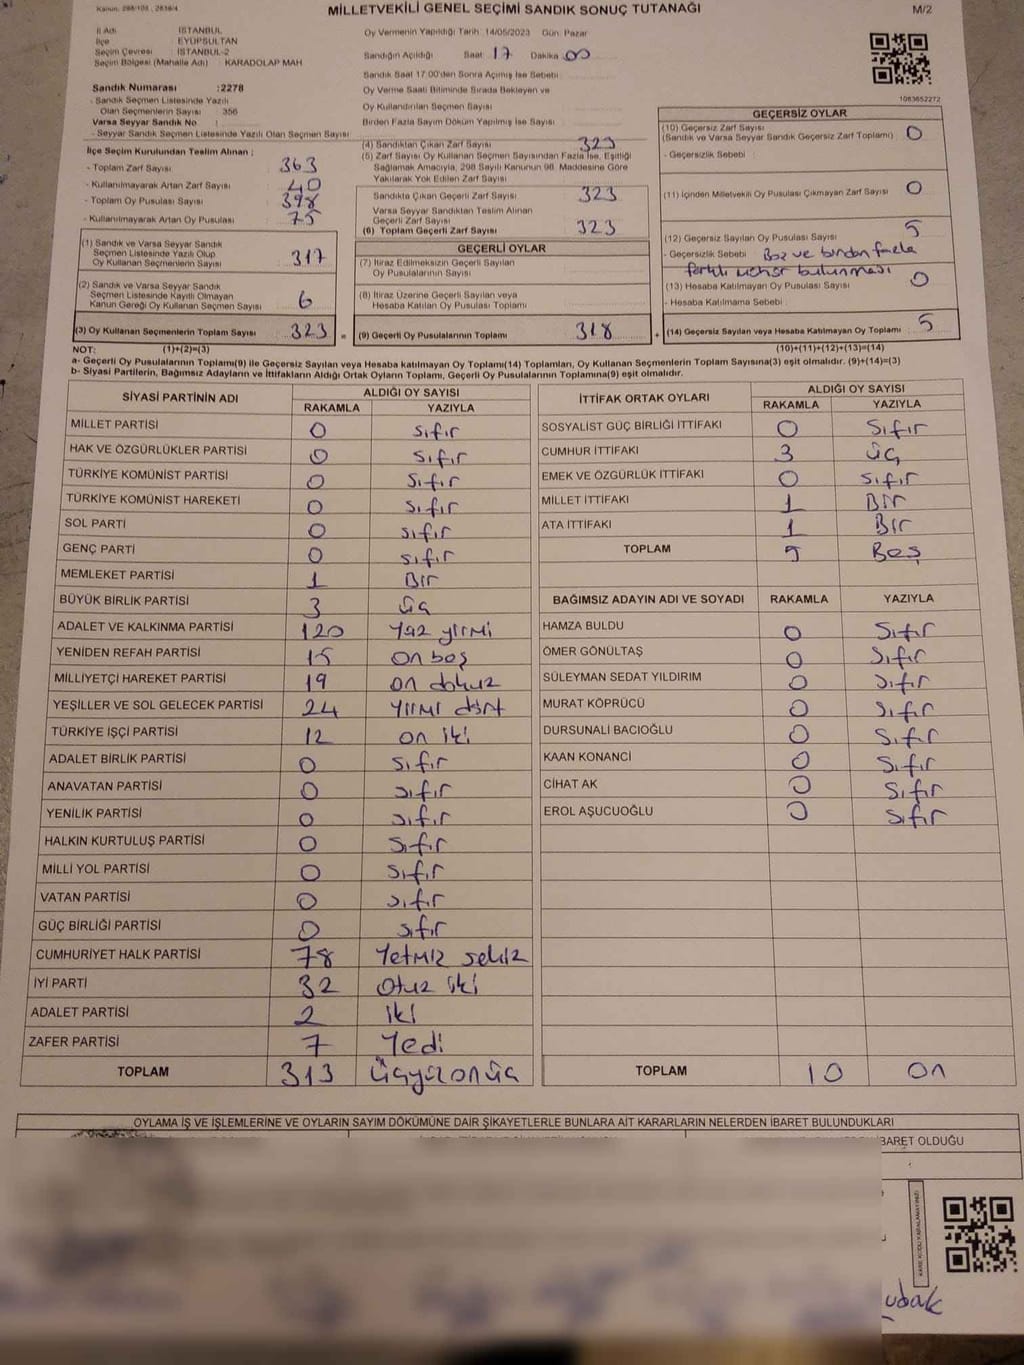 Kanun: 298/105 , 2839/4
MİLLETVEKİLİ GENEL SEÇİMİ SANDIK SONUÇ TUTANAĞI
M/2
İl Adı : İSTANBUL
İlçe : EYÜPSULTAN
Seçim Çevresi : İSTANBUL-2
Seçim Bölgesi (Mahalle Adı) : KARADOLAP MAH
Sandık Numarası :2278
- Sandık Seçmen Listesinde Yazılı
Olan Seçmenlerin Sayısı : 356
Varsa Seyyar Sandık No :
- Seyyar Sandık Seçmen Listesinde Yazılı Olan Seçmen Sayısı :
İlçe Seçim Kurulundan Teslim Alınan ;
- Toplam Zarf Sayısı : 363
- Kullanılmayarak Artan Zarf Sayısı : 40
- Toplam Oy Pusulası Sayısı : 398
- Kullanılmayarak Artan Oy Pusulası : 75
(1) Sandık ve Varsa Seyyar Sandık
Seçmen Listesinde Yazılı Olup
Oy Kullanan Seçmenlerin Sayısı : 317
(2) Sandık ve Varsa Seyyar Sandık
Seçmen Listesinde Kayıtlı Olmayan
Kanun Gereği Oy Kullanan Seçmen Sayısı : 6
(3) Oy Kullanan Seçmenlerin Toplam Sayısı : 323
(1)+(2)=(3)
Oy Vermenin Yapıldığı Tarih 14/05/2023 Gün: Pazar
Sandığın Açıldığı Saat 17 Dakika 00
Sandık Saat 17:00'den Sonra Açımış İse Sebebi:
Oy Verme Saati Bitiminde Sırada Bekleyen ve
Oy Kullandırılan Seçmen Sayısı
Birden Fazla Sayım Döküm Yapılmış İse Sayısı
(4) Sandıktan Çıkan Zarf Sayısı : 323
(5) Zarf Sayısı Oy Kullanan Seçmen Sayısından Fazla İse, Eşitliği
Sağlamak Amacıyla, 298 Sayılı Kanunun 98. Maddesine Göre
Yakılarak Yok Edilen Zarf Sayısı
Sandıkta Çıkan Geçerli Zarf Sayısı : 323
Varsa Seyyar Sandıktan Teslim Alınan
Geçerli Zarf Sayısı
(6) Toplam Geçerli Zarf Sayısı : 323
GEÇERLİ OYLAR
(7) İtiraz Edilmeksizin Geçerli Sayılan
Oy Pusulasının Sayısı
(8) İtiraz Üzerine Geçerli Sayılan veya
Hesaba Katılan Oy Pusulası Toplamı
= (9) Geçerli Oy Pusulalarının Toplamı : 318 +
1083652272
GEÇERSİZ OYLAR
(10) Geçersiz Zarf Sayısı
(Sandık ve Varsa Seyyar Sandık Geçersiz Zarf Toplamı) : 0
- Geçersizlik Sebebi :
(11) İçinden Milletvekili Oy Pusulası Çıkmayan Zarf Sayısı : 0
(12) Geçersiz Sayılan Oy Pusulası Sayısı : 5
- Geçersizlik Sebebi : Boz ve birden fazla
farklı mühür bulunması
(13) Hesaba Katılmayan Oy Pusulası Sayısı : 0
- Hesaba Katılmama Sebebi :
(14) Geçersiz Sayılan veya Hesaba Katılmayan Oy Toplamı : 5
(10)+(11)+(12)+(13)=(14)
NOT:
a- Geçerli Oy Pusulalarının Toplamı(9) ile Geçersiz Sayılan veya Hesaba katılmayan Oy Toplamı(14) Toplamları, Oy Kullanan Seçmenlerin Toplam Sayısına(3) eşit olmalıdır. (9)+(14)=(3)
b- Siyasi Partilerin, Bağımsız Adayların ve İttifakların Aldığı Ortak Oyların Toplamı, Geçerli Oy Pusulalarının Toplamına(9) eşit olmalıdır.
SİYASİ PARTİNİN ADI ALDIĞI OY SAYISI
RAKAMLA YAZIYLA
MİLLET PARTİSİ 0 sıfır
HAK VE ÖZGÜRLÜKLER PARTİSİ 0 sıfır
TÜRKİYE KOMÜNİST PARTİSİ 0 sıfır
TÜRKİYE KOMÜNİST HAREKETİ 0 sıfır
SOL PARTİ 0 sıfır
GENÇ PARTİ 0 sıfır
MEMLEKET PARTİSİ 1 Bir
BÜYÜK BİRLİK PARTİSİ 3 üç
ADALET VE KALKINMA PARTİSİ 120 Yüz yirmi
YENİDEN REFAH PARTİSİ 15 on beş
MİLLİYETÇİ HAREKET PARTİSİ 19 on dokuz
YEŞİLLER VE SOL GELECEK PARTİSİ 24 yirmi dört
TÜRKİYE İŞÇİ PARTİSİ 12 on iki
ADALET BİRLİK PARTİSİ 0 sıfır
ANAVATAN PARTİSİ 0 sıfır
YENİLİK PARTİSİ 0 sıfır
HALKIN KURTULUŞ PARTİSİ 0 sıfır
MİLLİ YOL PARTİSİ 0 sıfır
VATAN PARTİSİ 0 sıfır
GÜÇ BİRLİĞİ PARTİSİ 0 sıfır
CUMHURİYET HALK PARTİSİ 78 Yetmiz sekiz
İYİ PARTİ 32 otuz iki
ADALET PARTİSİ 2 iki
ZAFER PARTİSİ 7 Yedi
TOPLAM 313 üçyüzonüç
İTTİFAK ORTAK OYLARI ALDIĞI OY SAYISI
RAKAMLA YAZIYLA
SOSYALİST GÜÇ BİRLİĞİ İTTİFAKI 0 sıfır
CUMHUR İTTİFAKI 3 üç
EMEK VE ÖZGÜRLÜK İTTİFAKI 0 sıfır
MİLLET İTTİFAKI 1 Bir
ATA İTTİFAKI 1 Bir
TOPLAM 5 Beş
BAĞIMSIZ ADAYIN ADI VE SOYADI RAKAMLA YAZIYLA
HAMZA BULDU 0 sıfır
ÖMER GÖNÜLTAŞ 0 sıfır
SÜLEYMAN SEDAT YILDIRIM 0 sıfır
MURAT KÖPRÜCÜ 0 sıfır
DURSUNALİ BACIOĞLU 0 sıfır
KAAN KONANCİ 0 sıfır
CİHAT AK 0 sıfır
EROL AŞUCUOĞLU 0 sıfır
TOPLAM 10 on
OYLAMA İŞ VE İŞLEMLERİNE VE OYLARIN SAYIM DÖKÜMÜNE DAİR ŞİKAYETLERLE BUNLARA AİT KARARLARIN NELERDEN İBARET BULUNDUKLARI
BARET OLDUĞU
KARE KODU KARALAMAYINIZ!